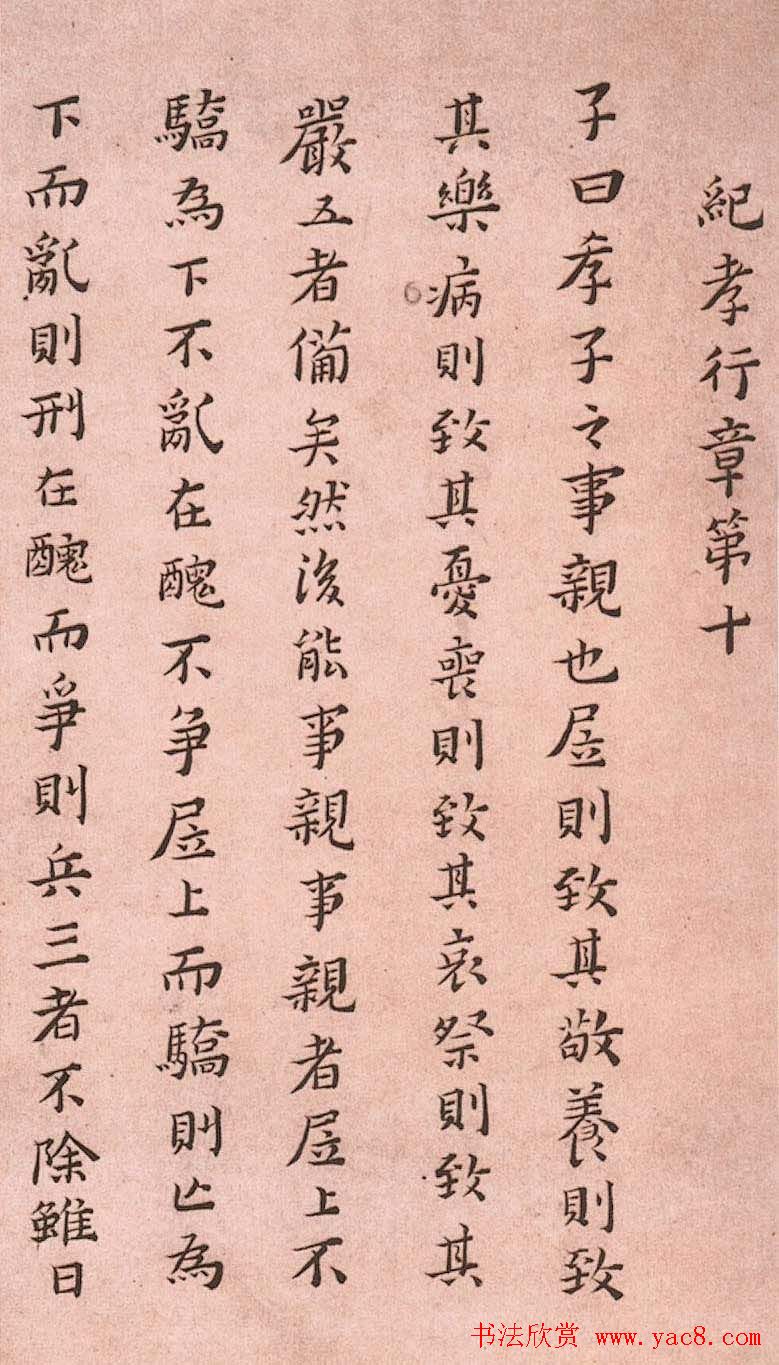 紀孝行章第十
子曰孝子之事親也居則致其敬養則致
其樂病則致其憂喪則致其哀祭則致其
嚴五者備矣然後能事親事親者居上不
驕為下不亂在醜不争居上而驕則亡為
下而亂則刑在醜而爭則兵三者不除雖日
6
书法欣赏 www.yac8.com